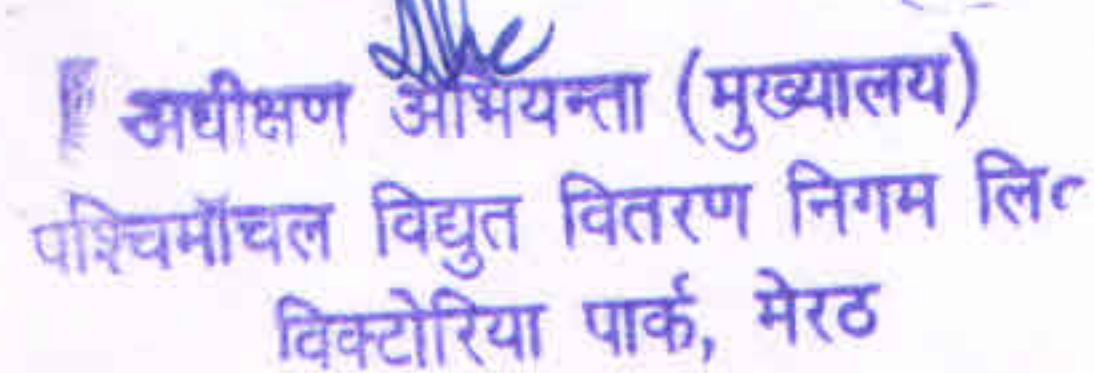 अधीक्षण अभियन्ता (मुख्यालय)
पश्चिमॉचल विद्युत वितरण निगम लि०
विक्टोरिया पार्क, मेरठ